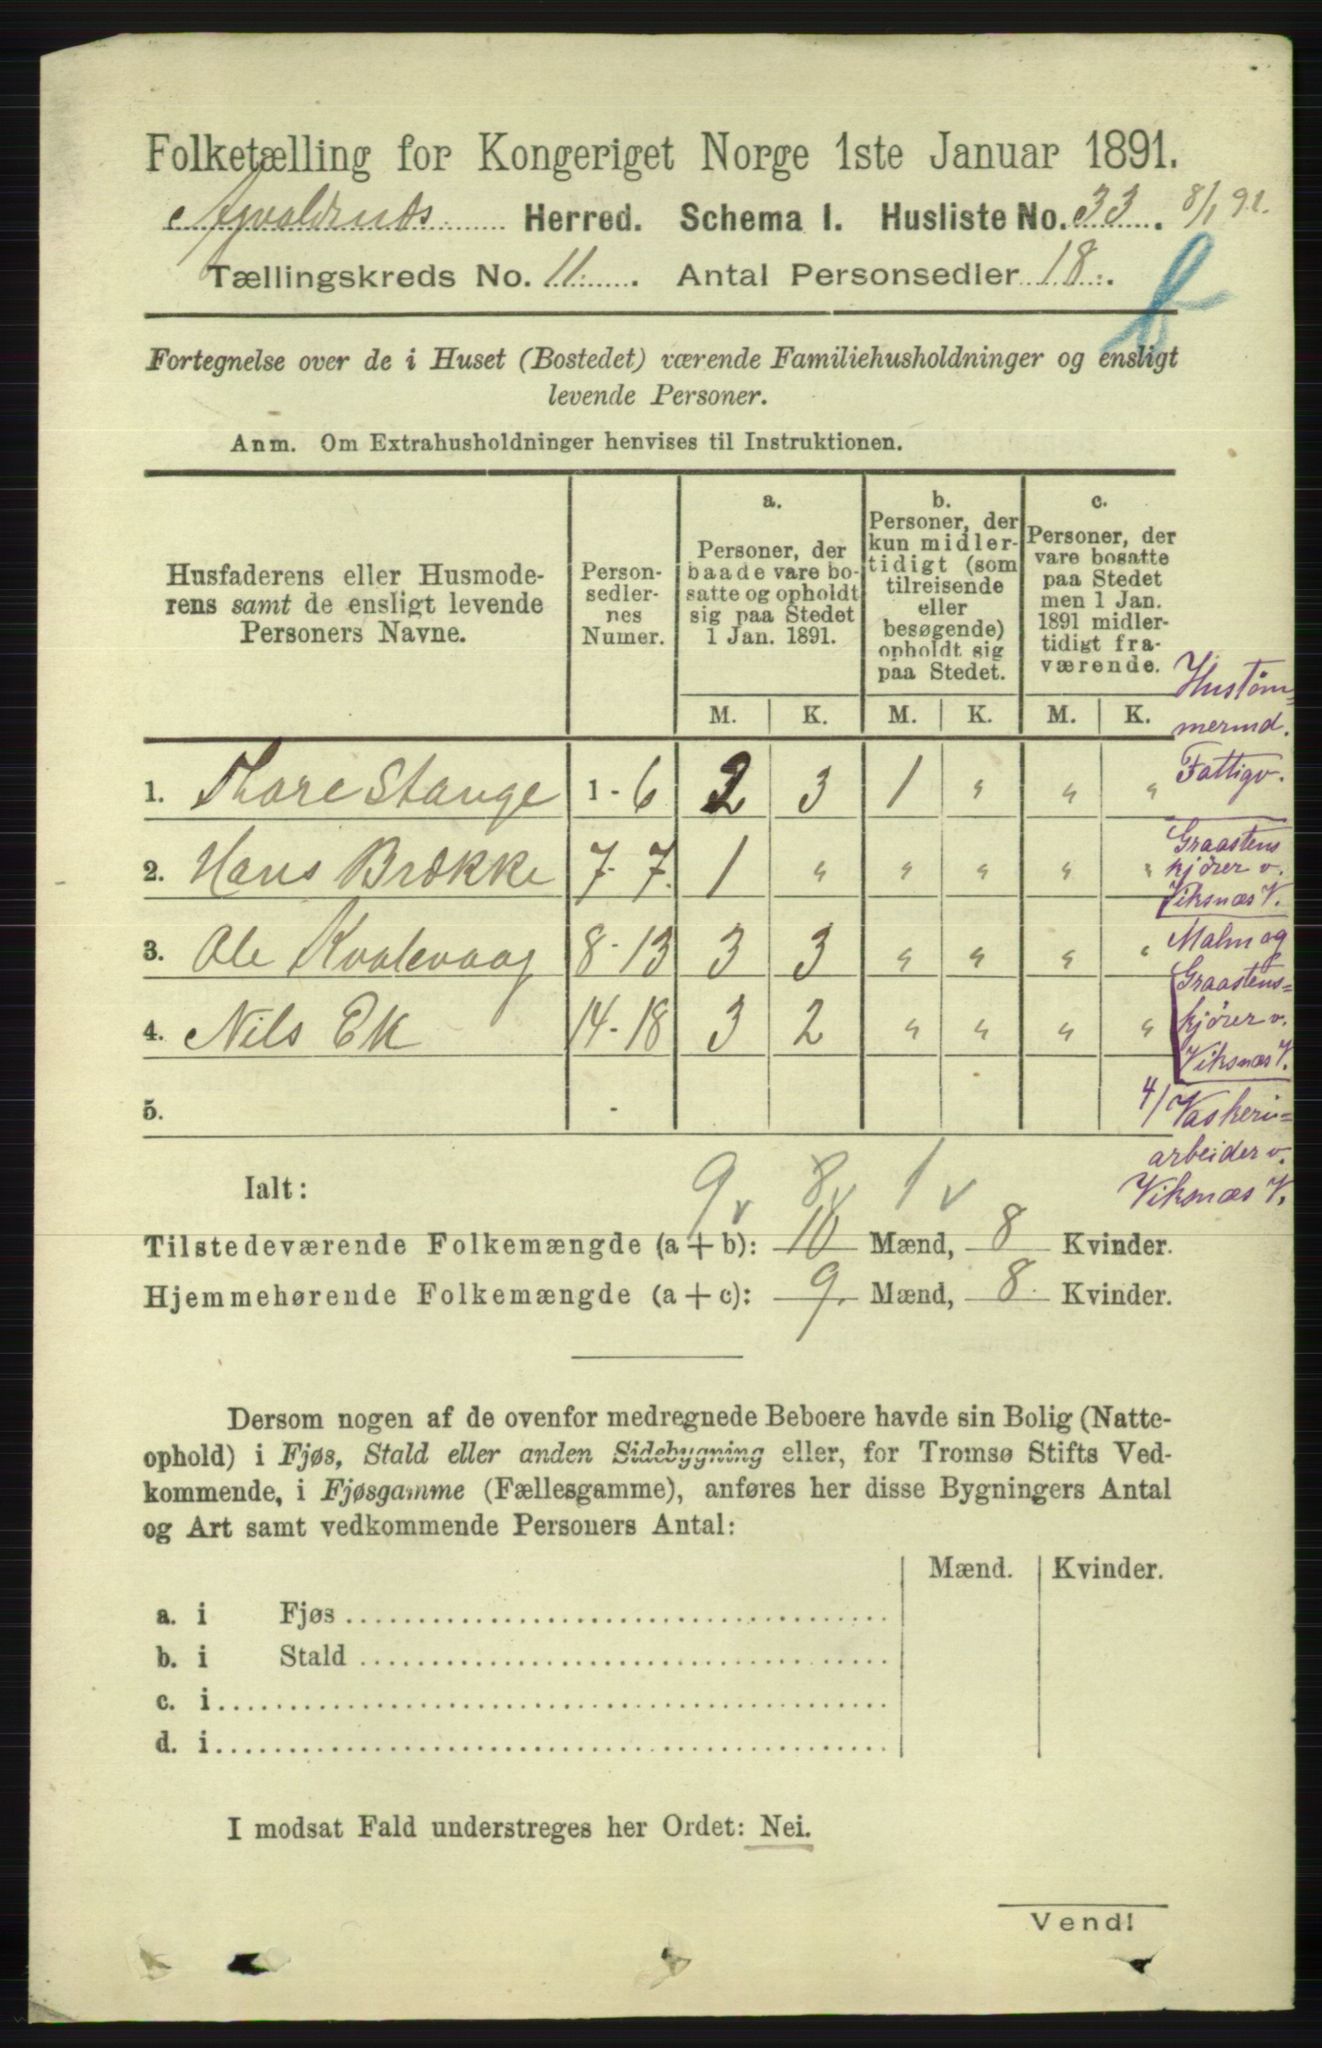 Folketælling for Kongeriget Norge 1ste Januar 1891.
Avaldsnæs Herred. Schema I. Husliste No. 33. 8/1 92.
Tællingskreds No. 11. Antal Personsedler 18.
Fortegnelse over de i Huset (Bostedet) værende Familiehusholdninger og ensligt
levende Personer.
Anm. Om Extrahusholdninger henvises til Instruktionen.
Husfaderens eller Husmode-
rens samt de ensligt levende
Personers Navne.
Person-
sedler-
nes
Numer.
a.
Personer, der
baade vare bo-
satte og opholdt
sig paa Stedet
1 Jan. 1891.
b.
Personer, der
kun midler-
tidigt (som
tilreisende
eller
besøgende)
opholdt sig
paa Stedet.
c.
Personer, der
vare bosatte
paa Stedet
men 1 Jan.
1891 midler-
tidigt fra-
værende.
M. K. M. K. M. K.
Hustøm=
mermd.
1. Thore Stange 1-6 2 3 1 " " " Fattigv.
2. Hans Brække 7-7. 1 " " " " " Graastens
kjører v.
Viksnæs V.
3. Ole Kvalevaag 8-13 3 3 " " " " Malm og
Graastens=
4. Nils Ek 14-18 3 2 " " " " kjører v.
Viksnæs V.
5. - 4/ Vaskeri=
arbeider v.
Viksnæs V.
Ialt: 9 v 8 v 1 v
Tilstedeværende Folkemængde (a + b): 10 Mænd, 8 Kvinder.
Hjemmehørende Folkemængde (a + c): 9. Mænd, 8. Kvinder.
Dersom nogen af de ovenfor medregnede Beboere havde sin Bolig (Natte-
ophold) i Fjøs, Stald eller anden Sidebygning eller, for Tromsø Stifts Ved-
kommende, i Fjøsgamme (Fællesgamme), anføres her disse Bygningers Antal
og Art samt vedkommende Personers Antal:
Mænd. Kvinder.
a. i Fjøs
b. i Stald
c. i
d. i
I modsat Fald understreges her Ordet: Nei.
Vend!